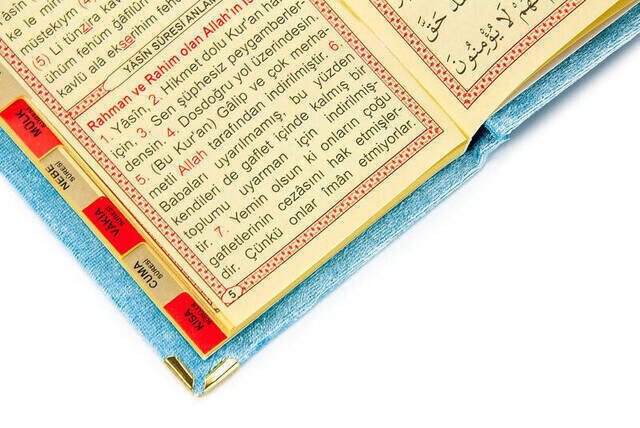 (5) Li tünzira kavmen
ühüm fehüm gâfilûn
kavlü alâ ekserihim fehüm
YÂSİN SÛRESİ ANLAMI
Rahman ve Rahim olan Allah'ın
1. Yâsîn. 2. Hikmet dolu Kur'an hakkı
için, 3. Sen şüphesiz peygamberler-
densin. 4. Dosdoğru yol üzerindesin.
5. (Bu Kur'an) Gâlip ve çok merha-
metli Allah tarafından indirilmiştir. 6.
Babaları uyarılmamış, bu yüzden
kendileri de gaflet içinde kalmış bir
toplumu uyarman için indirilmiş-
tir. 7. Yemin olsun ki onların çoğu
gafletlerinin cezasını hak etmişler-
dir. Çünkü onlar îmân etmiyorlar.
5
MÜLK
SÛRESİ
NEBE
SÛRESİ
VÂKIA
SÛRESİ
CUMA
SÛRESİ
KISA
SÛRELER
لَقَدْ حَقَّ
فَهُمْ لَا يُؤْمِنُونَ